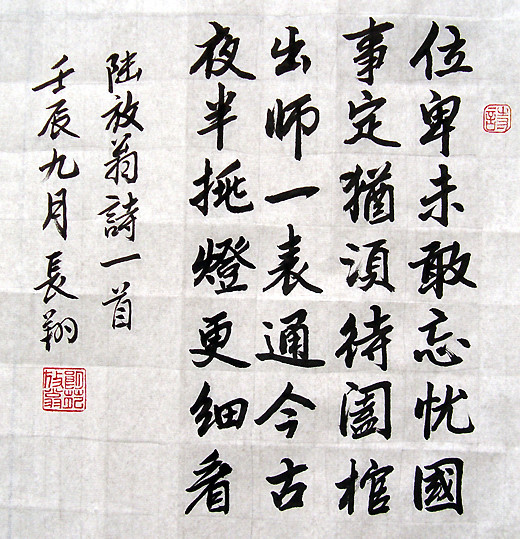 位卑未敢忘忧國
事定猶須待阖棺
出师一表通今古
夜半挑燈更细看
陸放翁詩一首
壬辰九月長翔